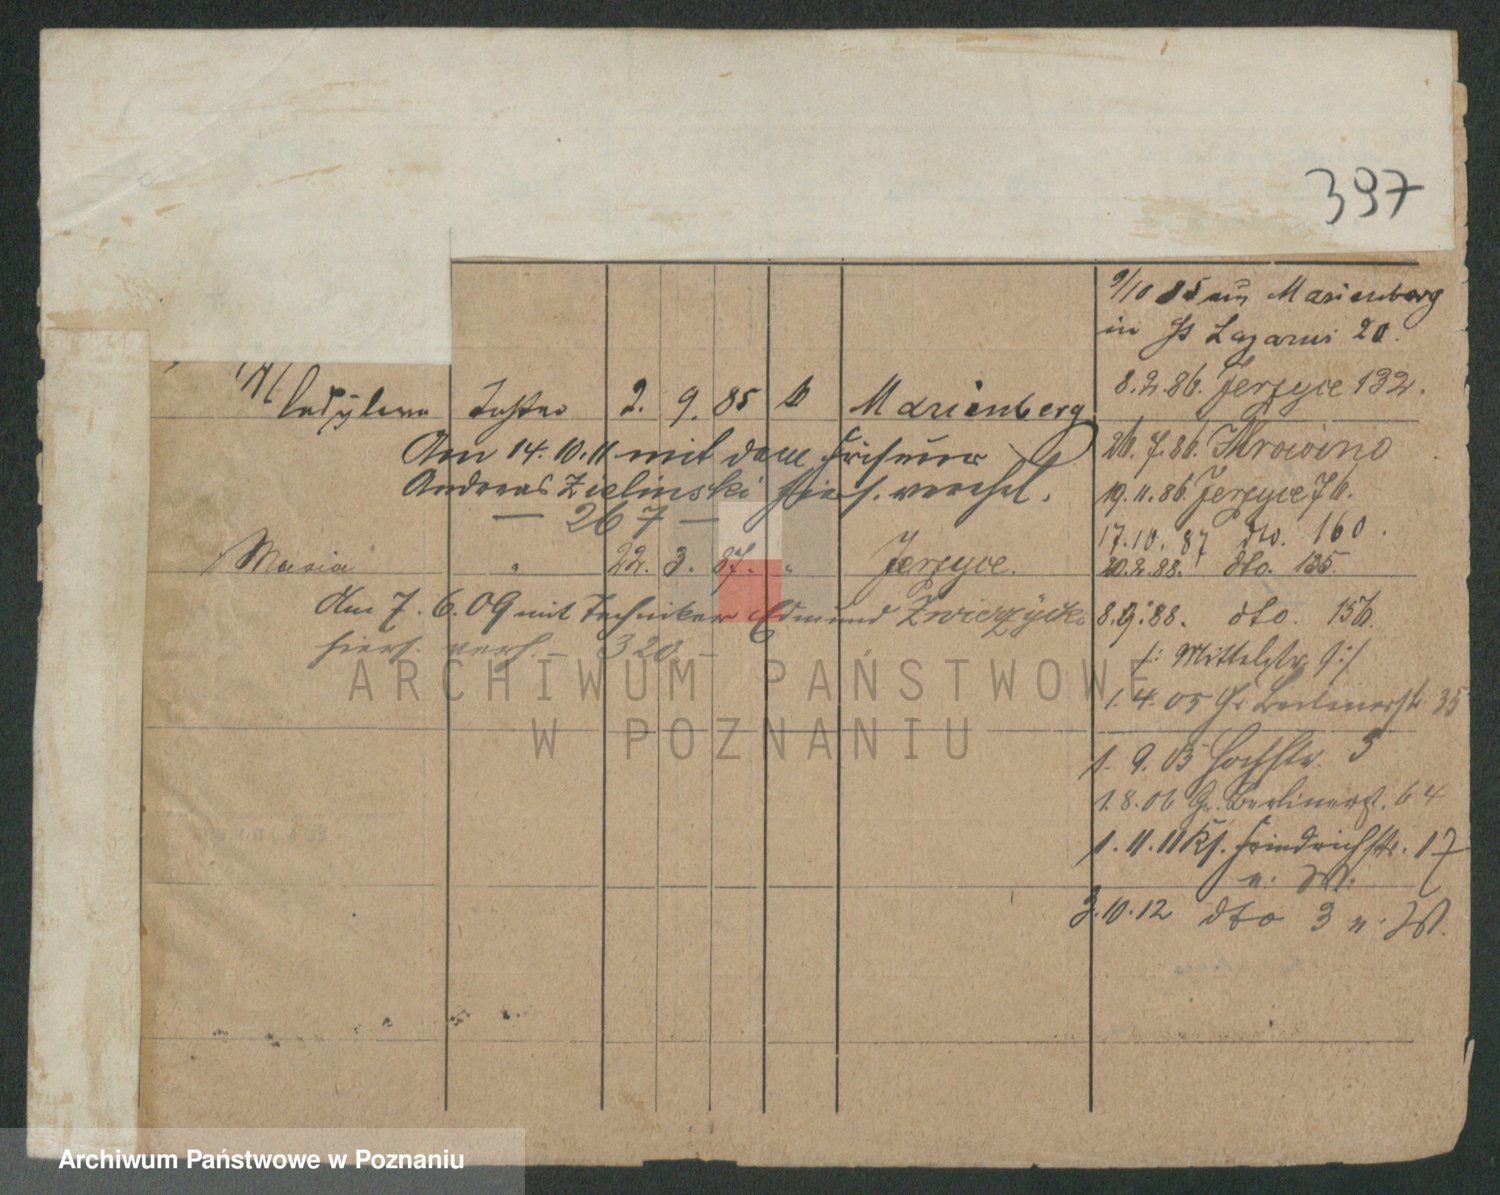 397
9/10 85 aus Marienberg
in St Lazarus 20.
8.2.86. Jerzyce 132.
Ladylawa Tochter 2. 9. 85 k Marienberg
Am 14.10.11 mit dem Friseur
Andreas Zielinski hies. verehel.
— 267 —
26.7.86. Krowino
19.11.86. Jerzyce 76.
17.10.87 dto. 160.
Maria " 22. 3. 87. " Jerzyce.
20.2.88. dto. 135.
Am 7.6.09 mit Techniker Edmund Zwierzycki
hiers. verh. — 320 —
8.9.88. dto. 156.
/: Mittelstr. 9 :/
1.4.05 Gr Berlinerstr 35
1.9.05 Hochstr. 3
1.8.06 Gr. Berlinerst. 64
1.11.11 Ks. Friedrichstr. 17
v. W.
3.10.12 dto 3 v. W.
ARCHIWUM PAŃSTWOWE
W POZNANIU
Archiwum Państwowe w Poznaniu